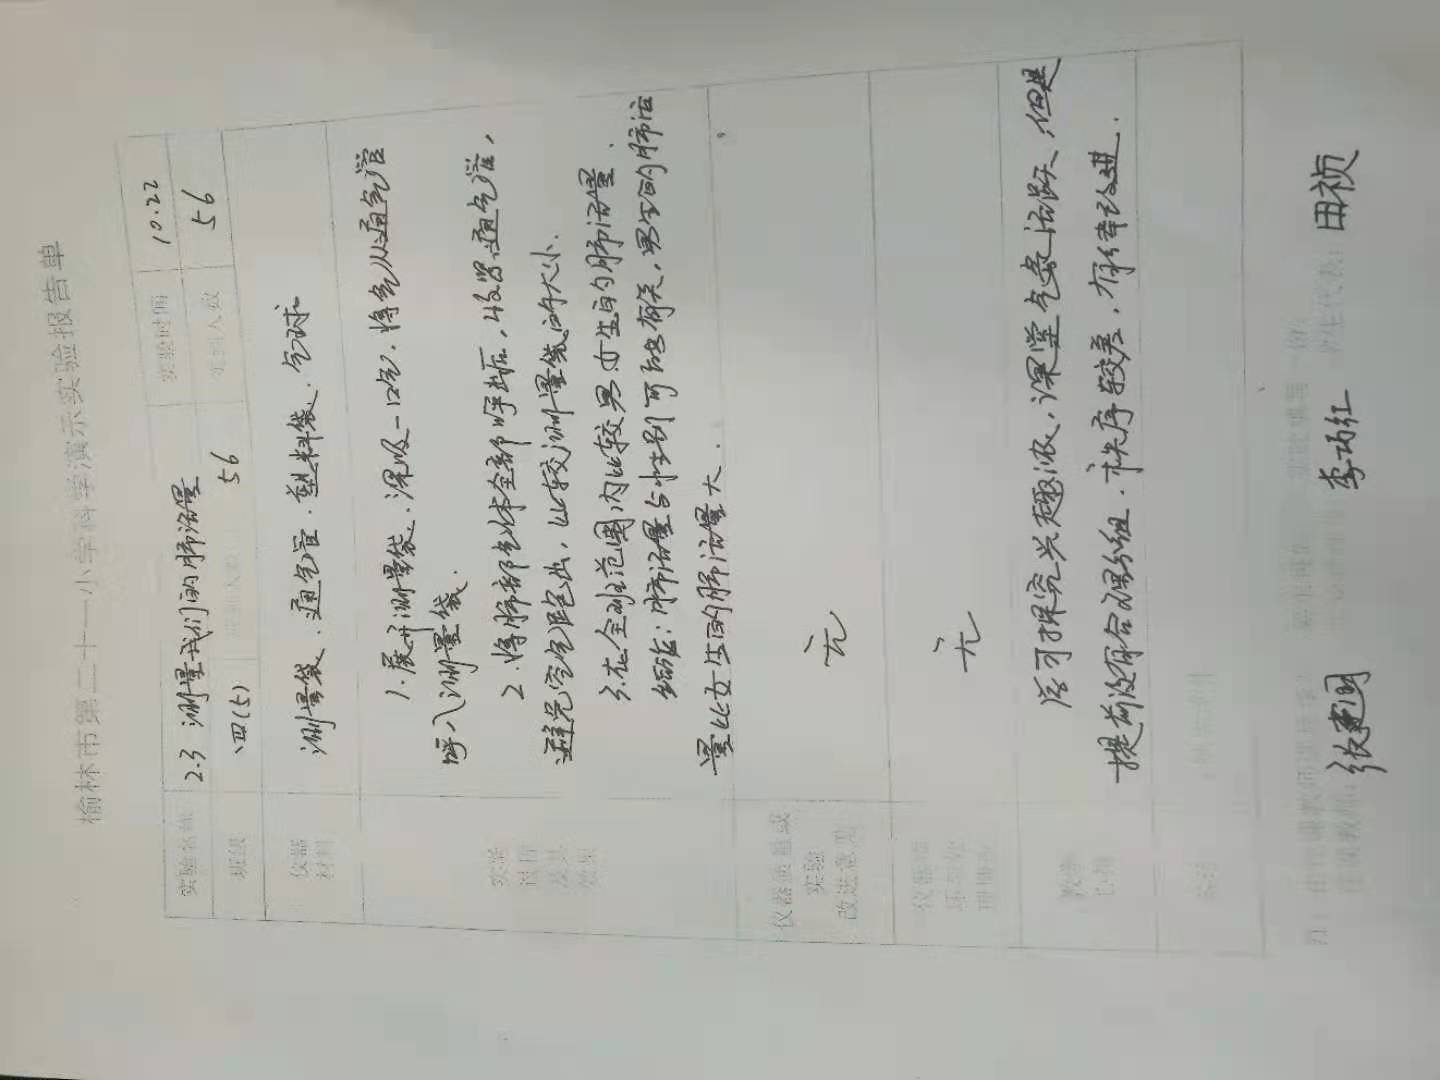 榆林市第二十一小学科学演示实验报告单
实验名称 2.3 测量我们的肺活量 实验时间 10.22
班级 四(5) 56 实到人数 56
仪器材料 测量袋、通气管、塑料袋、气球
实验过程及其效果
1.展开测量袋、深吸一口气,将气从通气管
呼入测量袋.
2.将肺部气体全部呼出后,收紧通气管,
避免空气跑出,比较测量袋的大小.
3.在全班范围内比较男女生的肺活量.
结论:肺活量与性别可能有关,男生的肺活
量比女生的肺活量大.
仪器质量或实验改进意见 无
无
教学
学习探究兴趣浓,课堂气氛活跃,但是
提前没有合理分组.秩序较差,有待改进.
张建国 李巧红 学生代表: 田祯